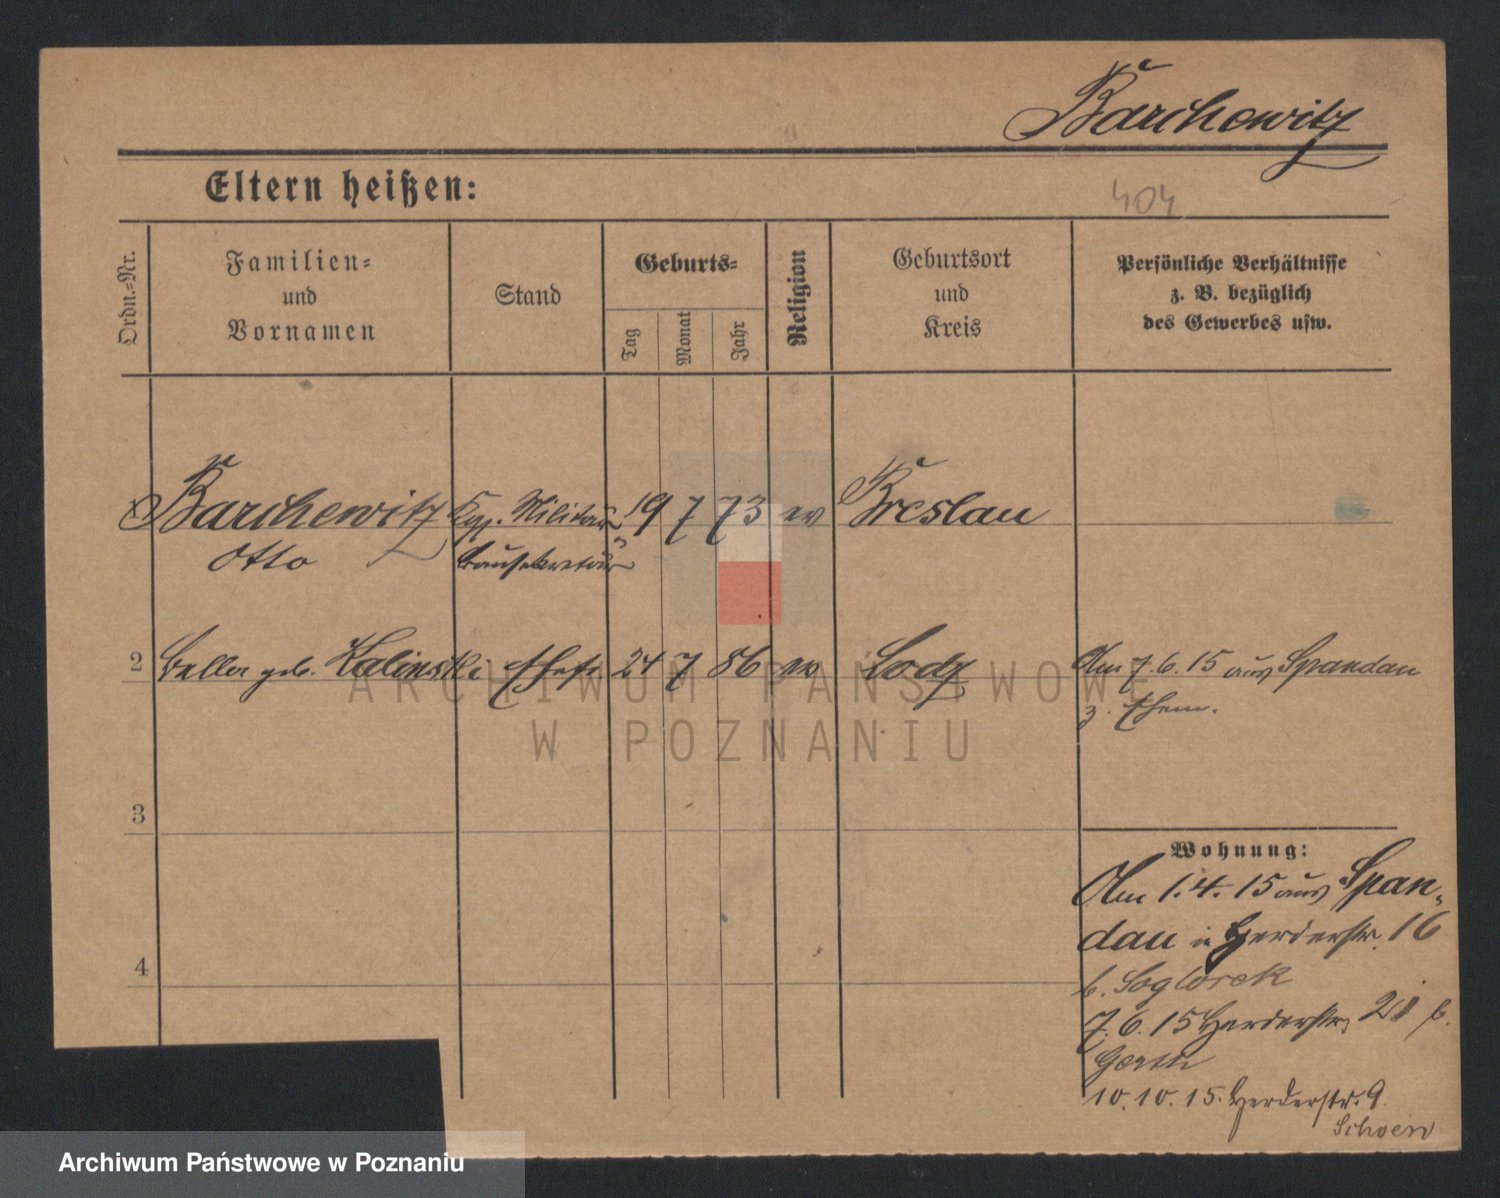 Barchewitz
Eltern heißen:
404
Ordn.-Nr.
Familien-
und
Vornamen
Stand
Geburts-
Tag
Monat
Jahr
Religion
Geburtsort
und
Kreis
Persönliche Verhältnisse
z. B. bezüglich
des Gewerbes usw.
Barchewitz Kgl. Militär- 19 7 73 ev Breslau
Otto Bausekretär
2 geb. Kalinski Ehefr. 24 7 86 ev Lodz Am 7.6.15 aus Spandau
z. Ehem.
3
Wohnung:
Am 1.4.15 aus Span-
dau in Herderstr. 16
4
b.
7.6.15 Herderstr. 21 b.
Gerth
10.10.15. Herderstr. 9
Schoen
ARCHIWUM PAŃSTWOWE
W POZNANIU
Archiwum Państwowe w Poznaniu